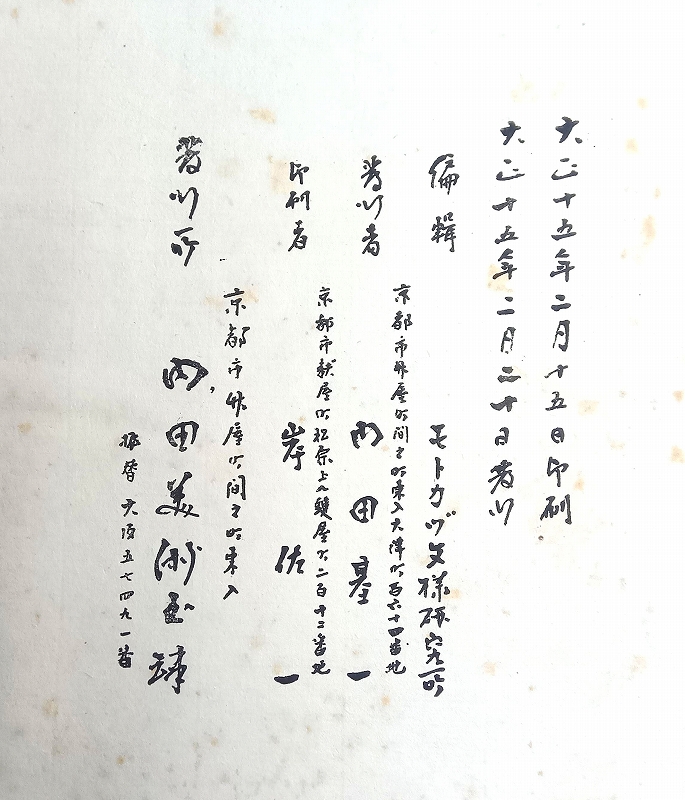 大正十五年二月十五日印刷
大正十五年二月二十日発行
編輯 モトカヅ文様研究所
京都市竹屋町間之町東入大津町百六十四番地
発行者 内田基一
京都市麩屋町松原上ル 屋町二百十二番地
印刷者 岸佐一
京都市竹屋町間之町東入
発行所 内田美術書肆
振替大阪五七四九一番